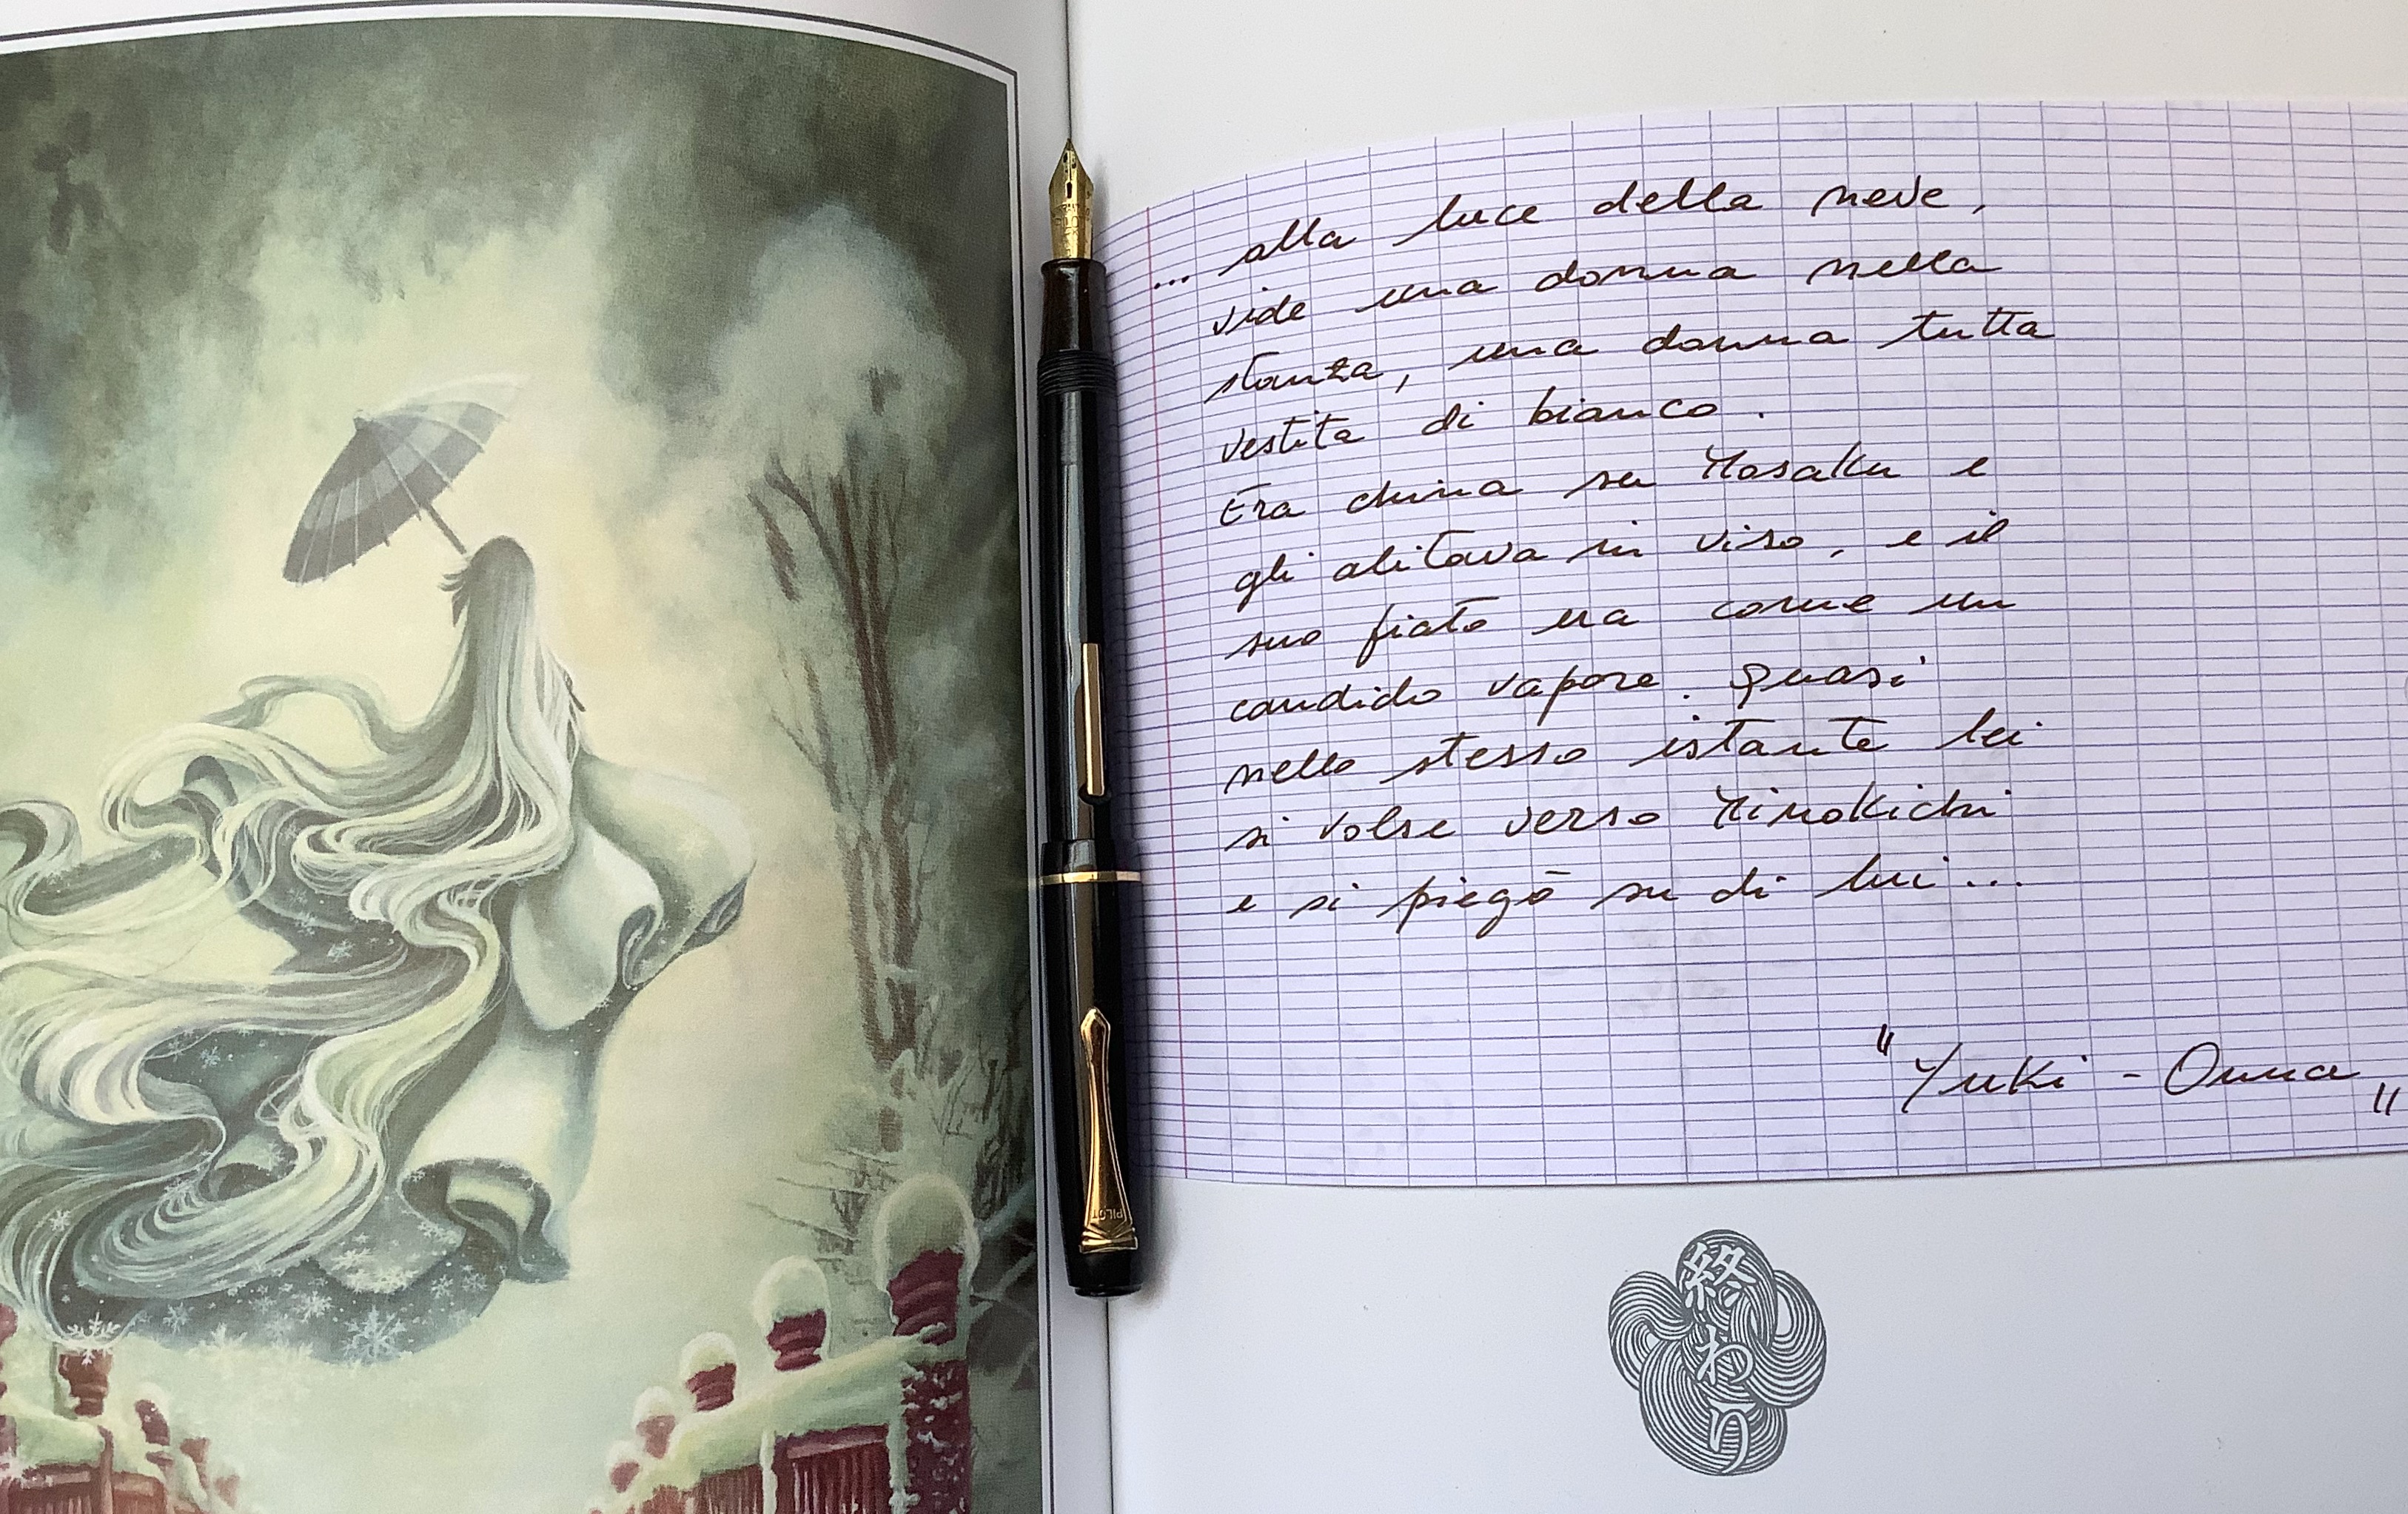 ... alla luce della neve,
vide una donna nella
stanza, una donna tutta
vestita di bianco.
Era china su Mosaku e
gli alitava in viso, e il
suo fiato era come un
candido vapore. Quasi
nello stesso istante lei
si volse verso Minokichi
e si piegò su di lui...
"Yuki - Onna"
PILOT
終わり